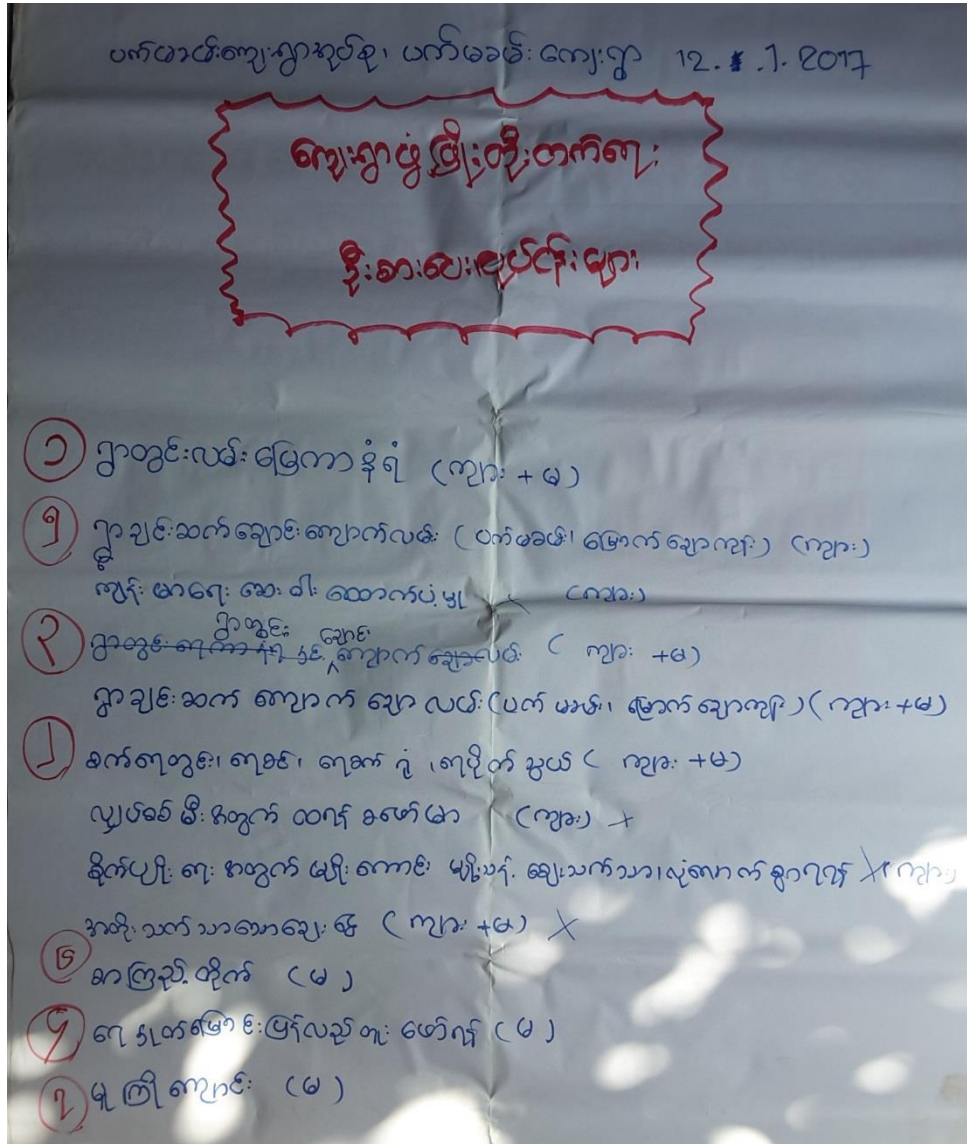 ပက်မခမ်းကျေးရွာအုပ်စု၊ ပက်မခမ်း ကျေးရွာ 12. 1. 2017
ကျေးရွာဖွံ့ဖြိုးတိုးတက်ရေး
ဦးစားပေးလုပ်ငန်းများ
၁ ရွာတွင်းလမ်း မြေကာ နံရံ (ကျား + မ)
၅ ရွာချင်းဆက်ချောင်းကျောက်လမ်း (ပက်မခမ်း၊ မြောက်ချောကျန်း) (ကျား)
ကျန်းမာရေး ဆေးဝါး ထောက်ပံ့မှု X (ကျား)
၃ ရွာတွင်း ရေကာ နံရံ နှင့် ရွာတွင်း ချောင်း ကျောက်ချောလမ်း ( ကျား +မ)
ရွာချင်းဆက် ကျောက် ချော လမ်း (ပက် မခမ်း၊ မြောက်ချောကျန်း) (ကျား +မ)
၂ စက်ရေတွင်း၊ ရေစင်၊ ရေစက် ရုံ ၊ရေပိုက် သွယ် ( ကျား +မ)
လျှပ်စစ် မီး အတွက် ထရန် စဖော်မာ (ကျား) X
စိုက်ပျိုး ရေး အတွက် မျိုးကောင်း မျိုးသန့် ချေးသက်သာ၊လုံလောက် စွာရရန် X (ကျား)
အတိုး သက်သာသော ချေး ငွေ (ကျား +မ) X
၆ စာကြည့် တိုက် (မ)
၄ ရေ နုတ်မြောင်း ပြန်လည် တူး ဖော်ရန် (မ)
၇ မူကြို ကျောင်း (မ)